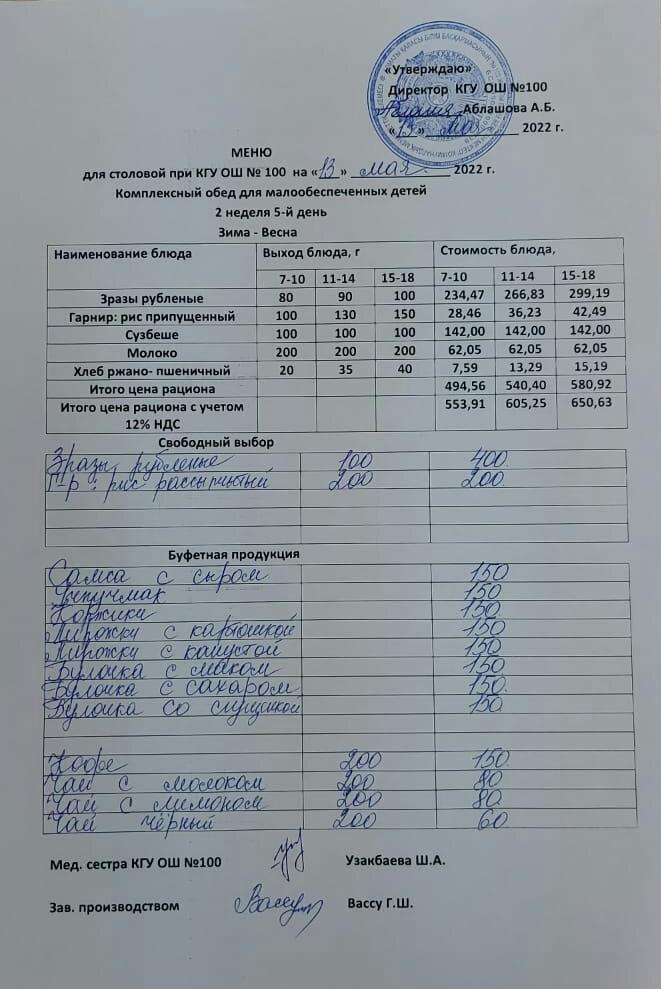 «Утверждаю»
Директор КГУ ОШ №100
Аблашова А.Б.
«13» мая 2022 г.
МЕНЮ
для столовой при КГУ ОШ № 100 на «13» мая 2022 г.
Комплексный обед для малообеспеченных детей
2 неделя 5-й день
Зима - Весна
Наименование блюда Выход блюда, г Стоимость блюда,
7-10 11-14 15-18 7-10 11-14 15-18
Зразы рубленые 80 90 100 234,47 266,83 299,19
Гарнир: рис припущенный 100 130 150 28,46 36,23 42,49
Сузбеше 100 100 100 142,00 142,00 142,00
Молоко 200 200 200 62,05 62,05 62,05
Хлеб ржано- пшеничный 20 35 40 7,59 13,29 15,19
Итого цена рациона 494,56 540,40 580,92
Итого цена рациона с учетом 553,91 605,25 650,63
12% НДС
Свободный выбор
Зразы рубленые 100 400.
Г-р: рис рассыпчатый 200 200.
Буфетная продукция
Самса с сыром 150
Учпучмак 150
Коржики 150
Пирожки с картошкой 150
Пирожки с капустой 150
Булочка с маком 150
Булочка с сахаром 150.
Булочка со сгущенкой 150
Кофе 200 150.
Чай с молоком 200 80
Чай с лимоном 200 80
Чай чёрный 200 60
Мед. сестра КГУ ОШ №100 Узакбаева Ш.А.
Зав. производством Вассу Г.Ш.